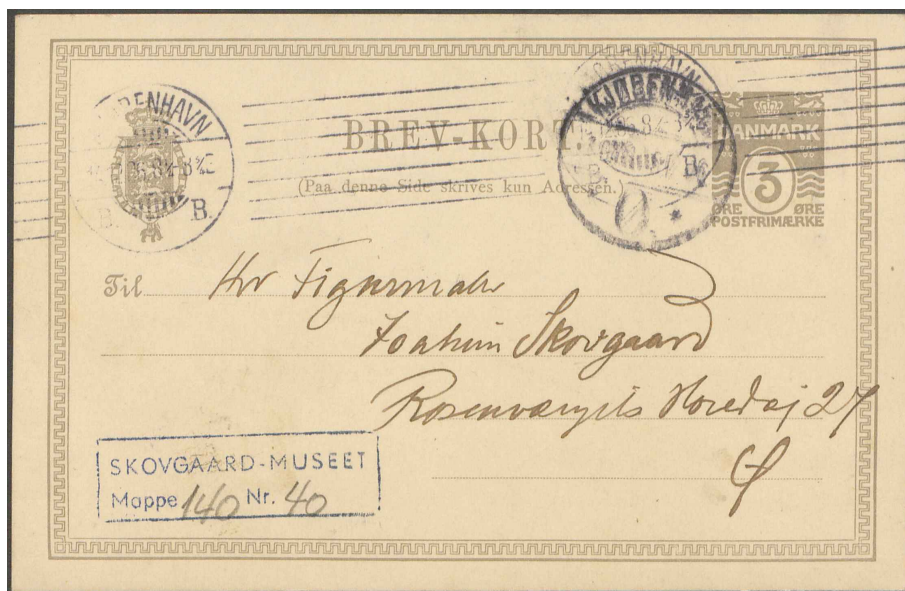 BREV-KORT.
(Paa denne Side skrives kun Adressen.)
KJØBENHAVN
B. B.
KJØBENHAVN
B.
Ø *
DANMARK
3
ØRE ØRE
POSTFRIMÆRKE
Til Hr Figurmaler
Joakim Skovgaard
Rosenvængets Hovedvej 27
Ø
SKOVGAARD-MUSEET
Mappe 140 Nr. 40